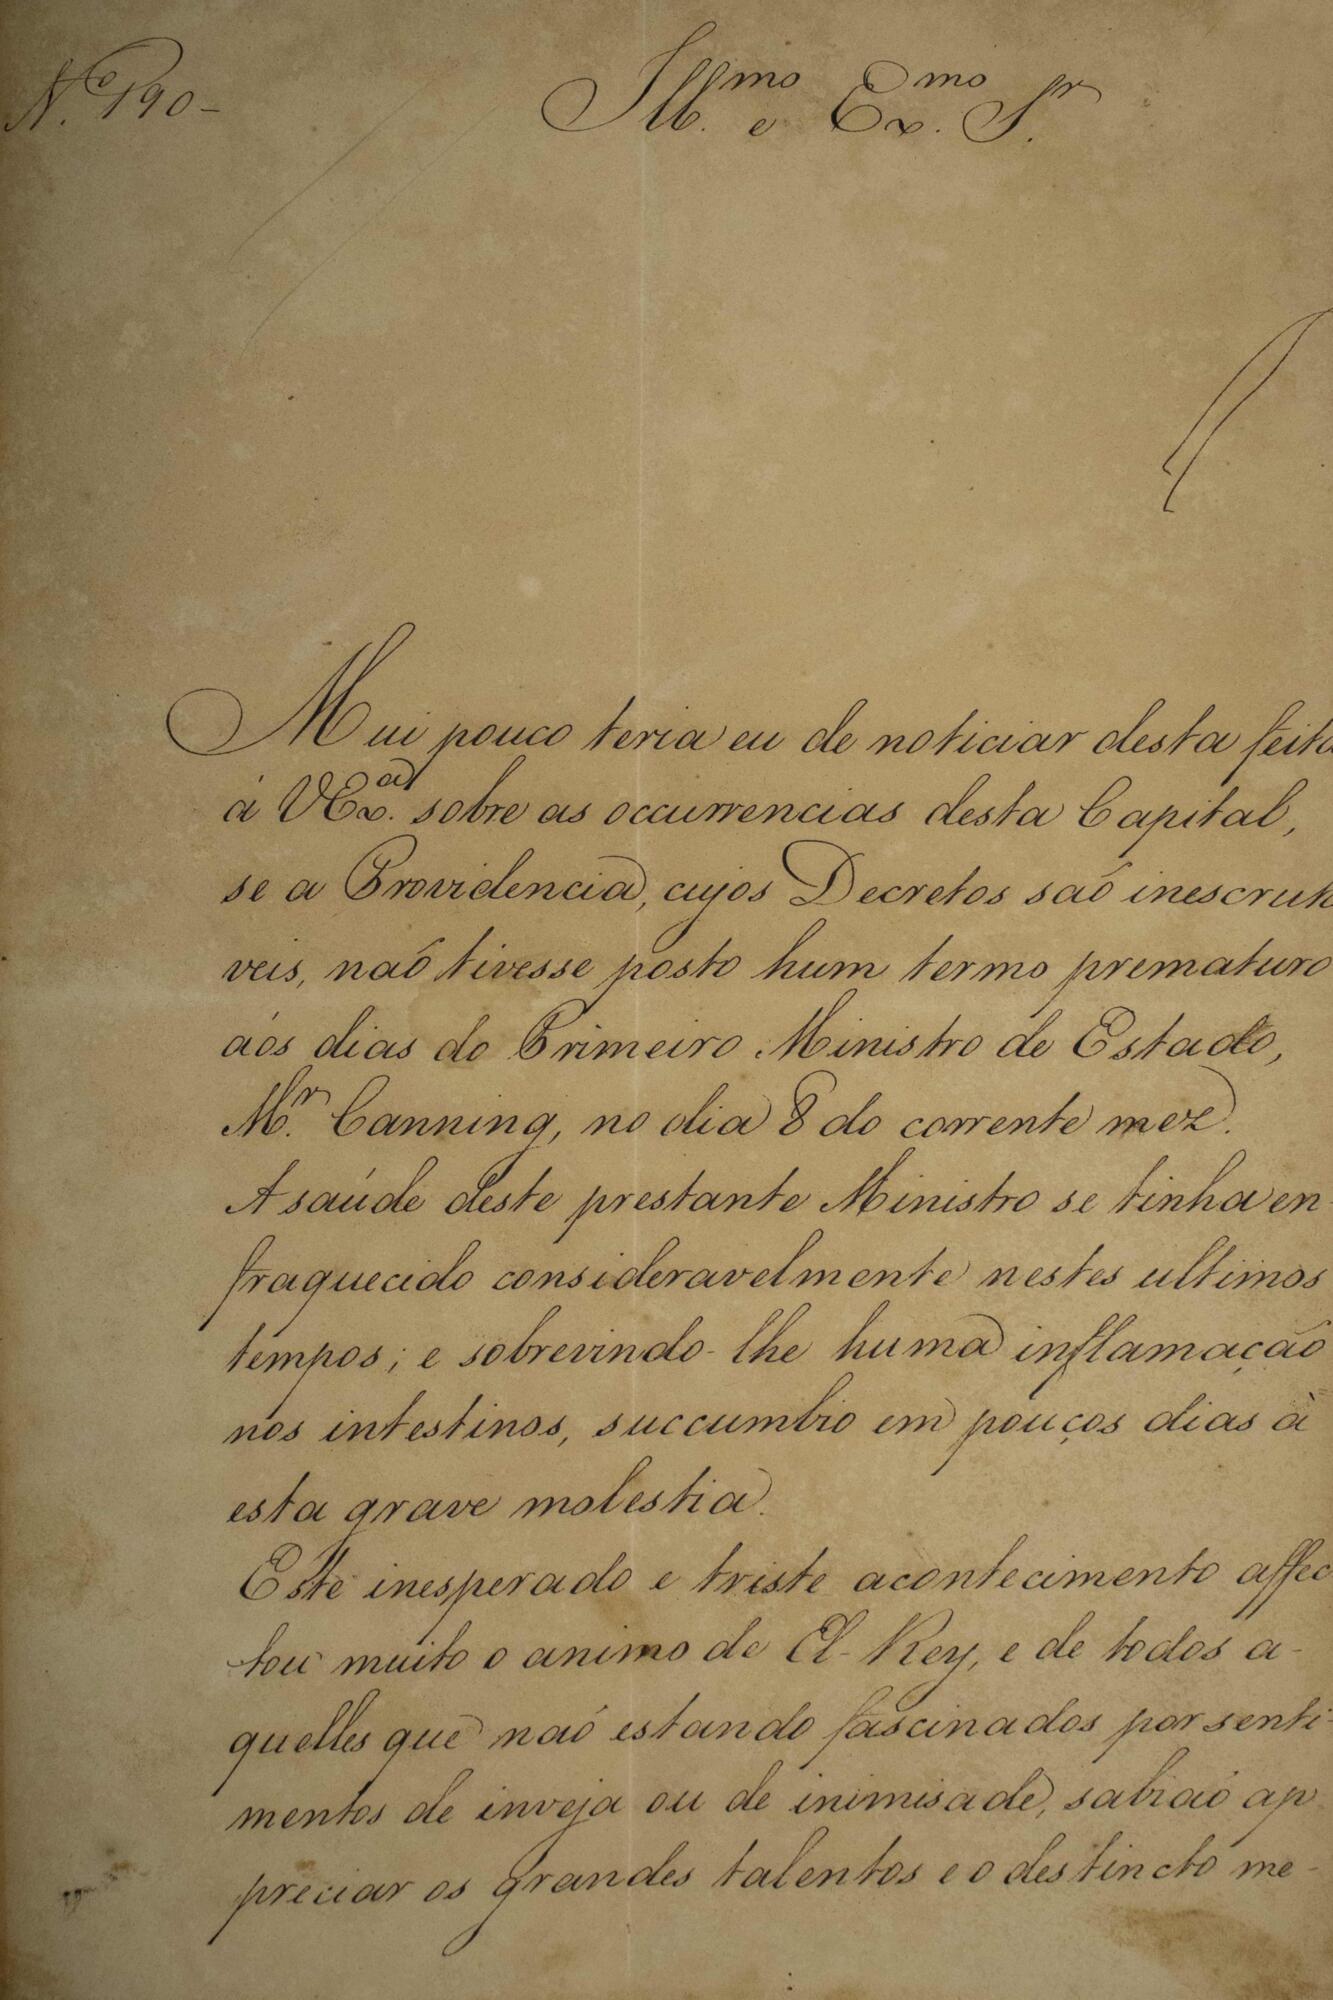 N.º 190-
Ill.mo e Ex.mo S.r
Mui pouco teria eu de noticiar desta feita
á VEx.a sobre as occurrencias desta Capital,
se a Providencia, cujos Decretos saõ inescruta
veis, naõ tivesse posto hum termo prematuro
aós dias do Primeiro Ministro de Estado,
M.r Canning, no dia 8 do corrente mez.
A saúde deste prestante Ministro se tinha en
fraquecido consideravelmente nestes ultimos
tempos; e sobrevindo-lhe huma inflamação
nos intestinos, succumbio em pouços dias à
esta grave molestia.
Este inesperado e triste acontecimento affec
tou muito o animo de El-Rey, e de todos a-
quelles que naõ estando fascinados por senti-
mentos de inveja ou de inimisade, sabiaõ ap
preciar os grandes talentos e o destincto me-